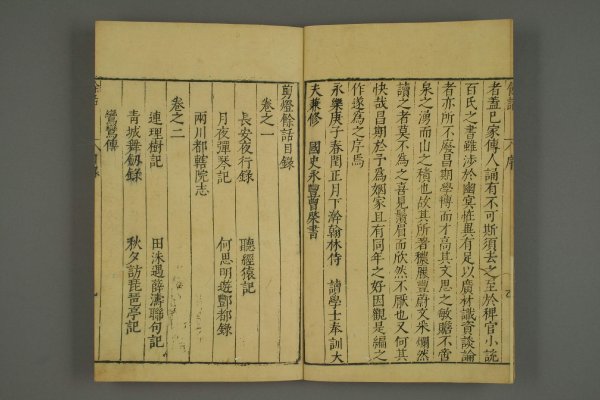 餘話
序
者蓋已家傳人誦有不可斯須去之至於稗官小說
百氏之書雖涉於幽冥恠異有足以廣材識資談論
者亦所不廢昌期學博而才高其文思之敏贍不啻
泉之湧而山之積也故其所著穠麗豐蔚文采爛然
讀之者莫不為之喜見鬚眉而欣然不厭也又何其
快哉昌期於予為姻家且有同年之好因觀是編之
作遂為之序焉
永樂庚子春閏正月下澣翰林侍 讀學士奉訓大
夫兼修 國史永豐曾棨書
剪燈餘話目錄
卷之一
長安夜行錄 聽經猿記
月夜彈琴記 何思明遊酆都錄
兩川都轄院志
卷之二
連理樹記 田洙遇薛濤聯句記
青城舞劍錄 秋夕訪琵琶亭記
鸞鸞傳